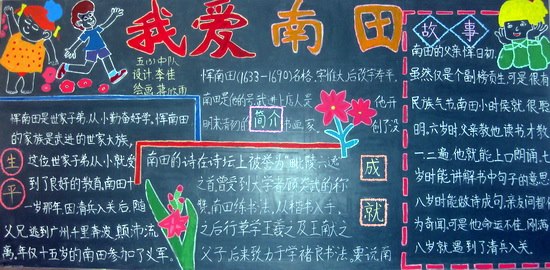 我爱南田
五(3)中队
设计 李佳
绘画 蒋欣雨
简介
恽南田(1633-1690)名格,字惟大,后改寿平,
南田是
武进上店人
明末清初
书画家
生平
恽南田是世家子弟,从小勤奋好学,恽南田
的家族是武进的世家大族,
这位世家子弟从小就受
到了良好的教育,南田十
一岁那年,因清兵入关后,随
父兄逃到广州千里奔波,颠沛流
离,年仅十五岁的南田参加了义军。
成就
南田的诗在诗坛上被誉为毗陵六逸
之首曾受到大学者顾炎武的称
赞,南田练书法,从楷书入手,
之后行草学王羲之及王献之
父子后来致力于学褚良书法,要说南
故事
南田的父亲恽日初,
虽然仅是个副榜贡生可是很有
民族气节,南田小时候就很聪
明,六岁时父亲教他读书才教
一、二遍,他就能上口朗诵,七
岁时能讲解书中句子的意思
八岁时能咏诗成句,亲友间皆
为奇闻,可是他命运不佳,刚满
八岁就遇到了清兵入关,